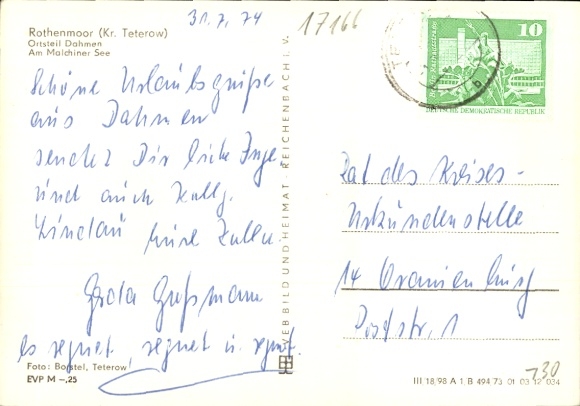 31.7.74
17166
Rothenmoor (Kr. Teterow)
Ortsteil Dahmen
Am Malchiner See
Schöne Urlaubsgrüße
aus Dahmen
sendet Dir liebe Inge
und auch Kollg.
Lindau
Gerda Gußmann
es regnet, regnet u. regnet.
Foto: Borstel, Teterow
EVP M –,25
VEB BILD UND HEIMAT REICHENBACH i. V.
10
DEUTSCHE DEMOKRATISCHE REPUBLIK
Rat des Kreises-
Urkundenstelle
14 Oranienburg
Poststr. 1
III 18/98 A 1/B 494 73 01 03 12 034